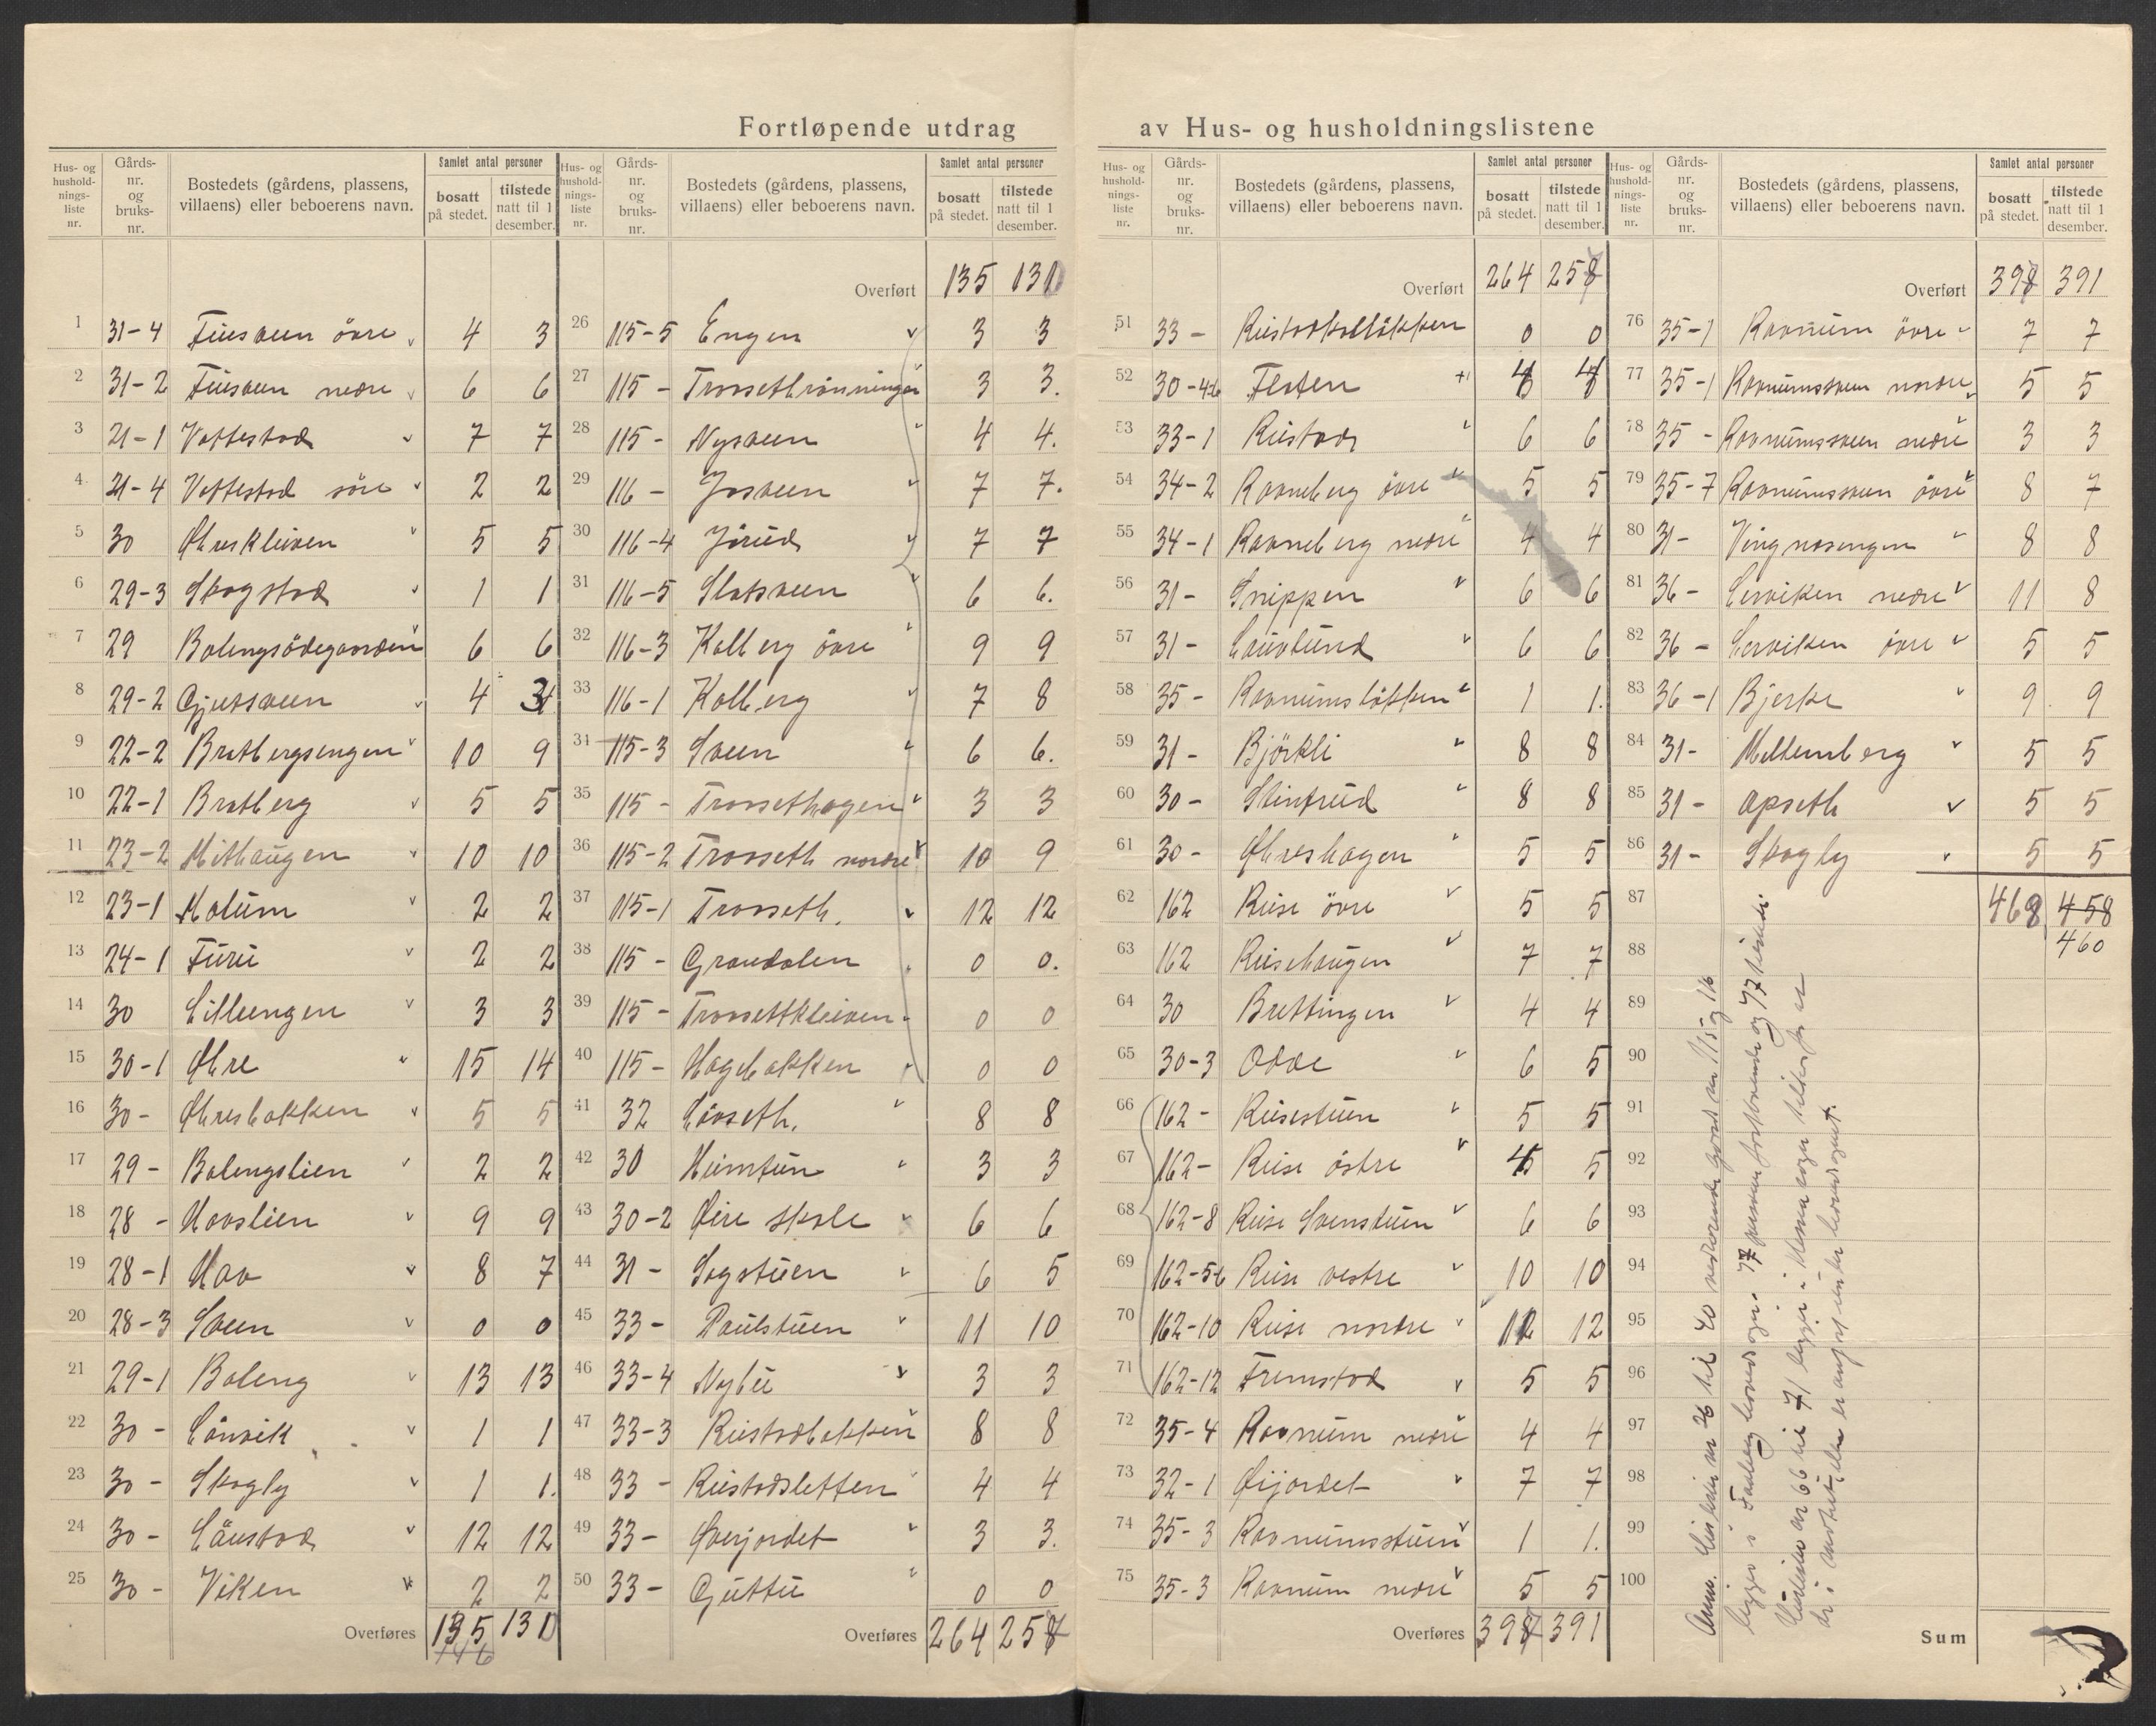 Fortløpende utdrag av Hus- og husholdningslistene
Hus- og husholdnings-liste nr. Gårds-nr. og bruks-nr. Bostedets (gårdens, plassens, villaens) eller beboerens navn. Samlet antal personer bosatt på stedet. tilstede natt til 1 desember.
1 31-4 Fuesveen övre 4 3
2 31-2 Fuesveen nedre 6 6
3 21-1 Vottestad 7 7
4 21-4 Vottestad söre 2 2
5 30 Øhreskleiven 5 5
6 29-3 Skogstad 1 1
7 29 Balengsödegaarden 6 6
8 29-2 Gjutsveen 4
9 22-2 Bratbergsengen 10 9
10 22-1 Bratberg 5 5
11 23-2 Mithaugen 10 10
12 23-1 Molum 2 2
13 24-1 Furu 2 2
14 30 Lilleengen 3 3
15 30-1 Øhre 15 14
16 30- Øhresbakken 5 5
17 29- Balengslien 2 2
18 28- Hovslien 9 9
19 28-1 Hov 8 7
20 28-3 Sveen 0 0
21 29-1 Baleng 13 13
22 30- Lånvik 1 1
23 30- Skogly 1 1.
24 30- Låustad 12 12
25 30- Viken 2 2
Overføres 135 131
146
Hus- og husholdnings-liste nr. Gårds-nr. og bruks-nr. Bostedets (gårdens, plassens, villaens) eller beboerens navn. Samlet antal personer bosatt på stedet. tilstede natt til 1 desember.
Overført 135 131
26 115-5 Engen 3 3
27 115- Trossethrönningen 3 3.
28 115- Nysveen 4 4.
29 116- Josveen 7 7.
30 116-4 Jörud 7 7
31 116-5 Slaatsveen 6 6.
32 116-3 Kalberg övre 9 9
33 116-1 Kalberg 7 8
34 115-3 Sveen 6 6.
35 115- Trossethagen 3 3
36 115-2 Trosseth nordre 10 9
37 115-1 Trosseth. 12 12
38 115- Grandalen 0 0.
39 115- Trossettkleiven 0 0
40 115- Hagebakken 0 0
41 32 Lövseth. 8 8
42 30 Heimtun 3 3
43 30-2 Øire skole 6 6
44 31- Sogstuen 6 5
45 33- Paulstuen 11 10
46 33-4 Nybu 3 3
47 33-3 Rustadbakken 8 8
48 33- Rustadsletten 4 4
49 33- Øverjordet 3 3.
50 33- Guttu 0 0
Overføres 264 257
Hus- og husholdnings-liste nr. Gårds-nr. og bruks-nr. Bostedets (gårdens, plassens, villaens) eller beboerens navn. Samlet antal personer bosatt på stedet. tilstede natt til 1 desember.
Overført 264 258
51 33- 0 0
52 30-4-6 Flaten
53 33-1 Rustad 6 6
54 34-2 Ravneberg övre 5 5
55 34-1 Ravneberg nedre 4 4
56 31- Snippen 6 6
57 31- Lauvlund 6 6
58 35- Ravnumslökken 1 1.
59 31- Björkli 8 8
60 30- Slinfrud 8 8
61 30- Øhreshagen 5 5
62 162 Ruse övre 5 5
63 162 Rusehaugen 7 7
64 30 Brettingen 4 4
65 30-3 Odde 6 5
66 162- Rusestuen 5 5
67 162- Ruse östre 5
68 162-8 Ruse Svenstuen 6 6
69 162-5-6 Ruse vestre 10 10
70 162-10 Ruse nordre 12 12
71 162-12 Fremstad 5 5
72 35-4 Ravnum nedre 4 4
73 32-1 Øijordet 7 7
74 35-3 Ravnumsstuen 1 1.
75 35-3 Ravnum nedre 5 5
Overføres 398 391
Hus- og husholdnings-liste nr. Gårds-nr. og bruks-nr. Bostedets (gårdens, plassens, villaens) eller beboerens navn. Samlet antal personer bosatt på stedet. tilstede natt til 1 desember.
Overført 398 391
76 35-1 Ravnum övre 7 7
77 35-1 Ravnumssveen nordre 5 5
78 35- Ravnumssveen nedre 3 3
79 35-7 Ravnumssveen övre 8 7
80 31- Vingnesengen 8 8
81 36- Lerviken nedre 11 8
82 36- Lerviken övre 5 5
83 36-1 Bjerke 9 9
84 31- Mellemberg 5 5
85 31- Opseth 5 5
86 31- Skogly 5 5
87 468 458
88 460
89
90
91
92
93
94
95
96
97
98
99
100
Anm. Huslister nr 26 til 40 vedrörende gaard nr 115 og 116
ligger i Faaberg hovedsogn. 77 personer hjemmehörende og 77 tilstede
Huslister nr 66 til 71 ligger i
Sum